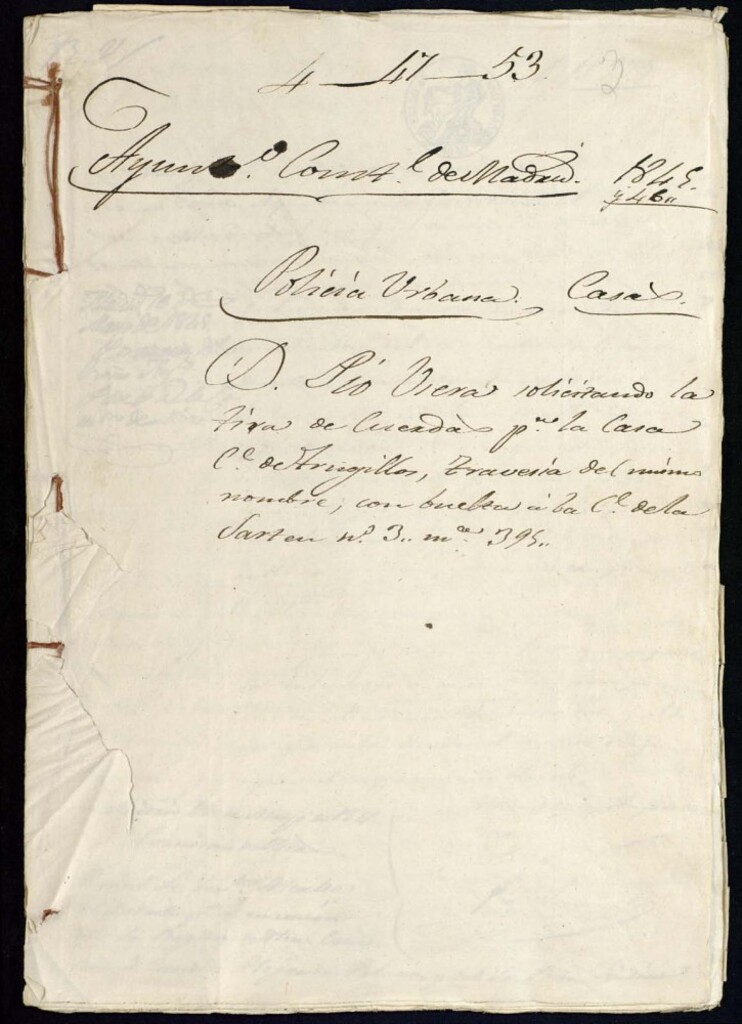 4 — 47 — 53
3
Ayunto. Constl. de Madrid. 1845.
y 46"
Policía Urbana. Casas.
D. Pio Viera solicitando la
tira de Cuerdas pa. la Casa
Ce. de Trugillos, travesía del mismo
nombre, con buelta á la Ce. de la
Sarten nº. 3.. mna. 395..